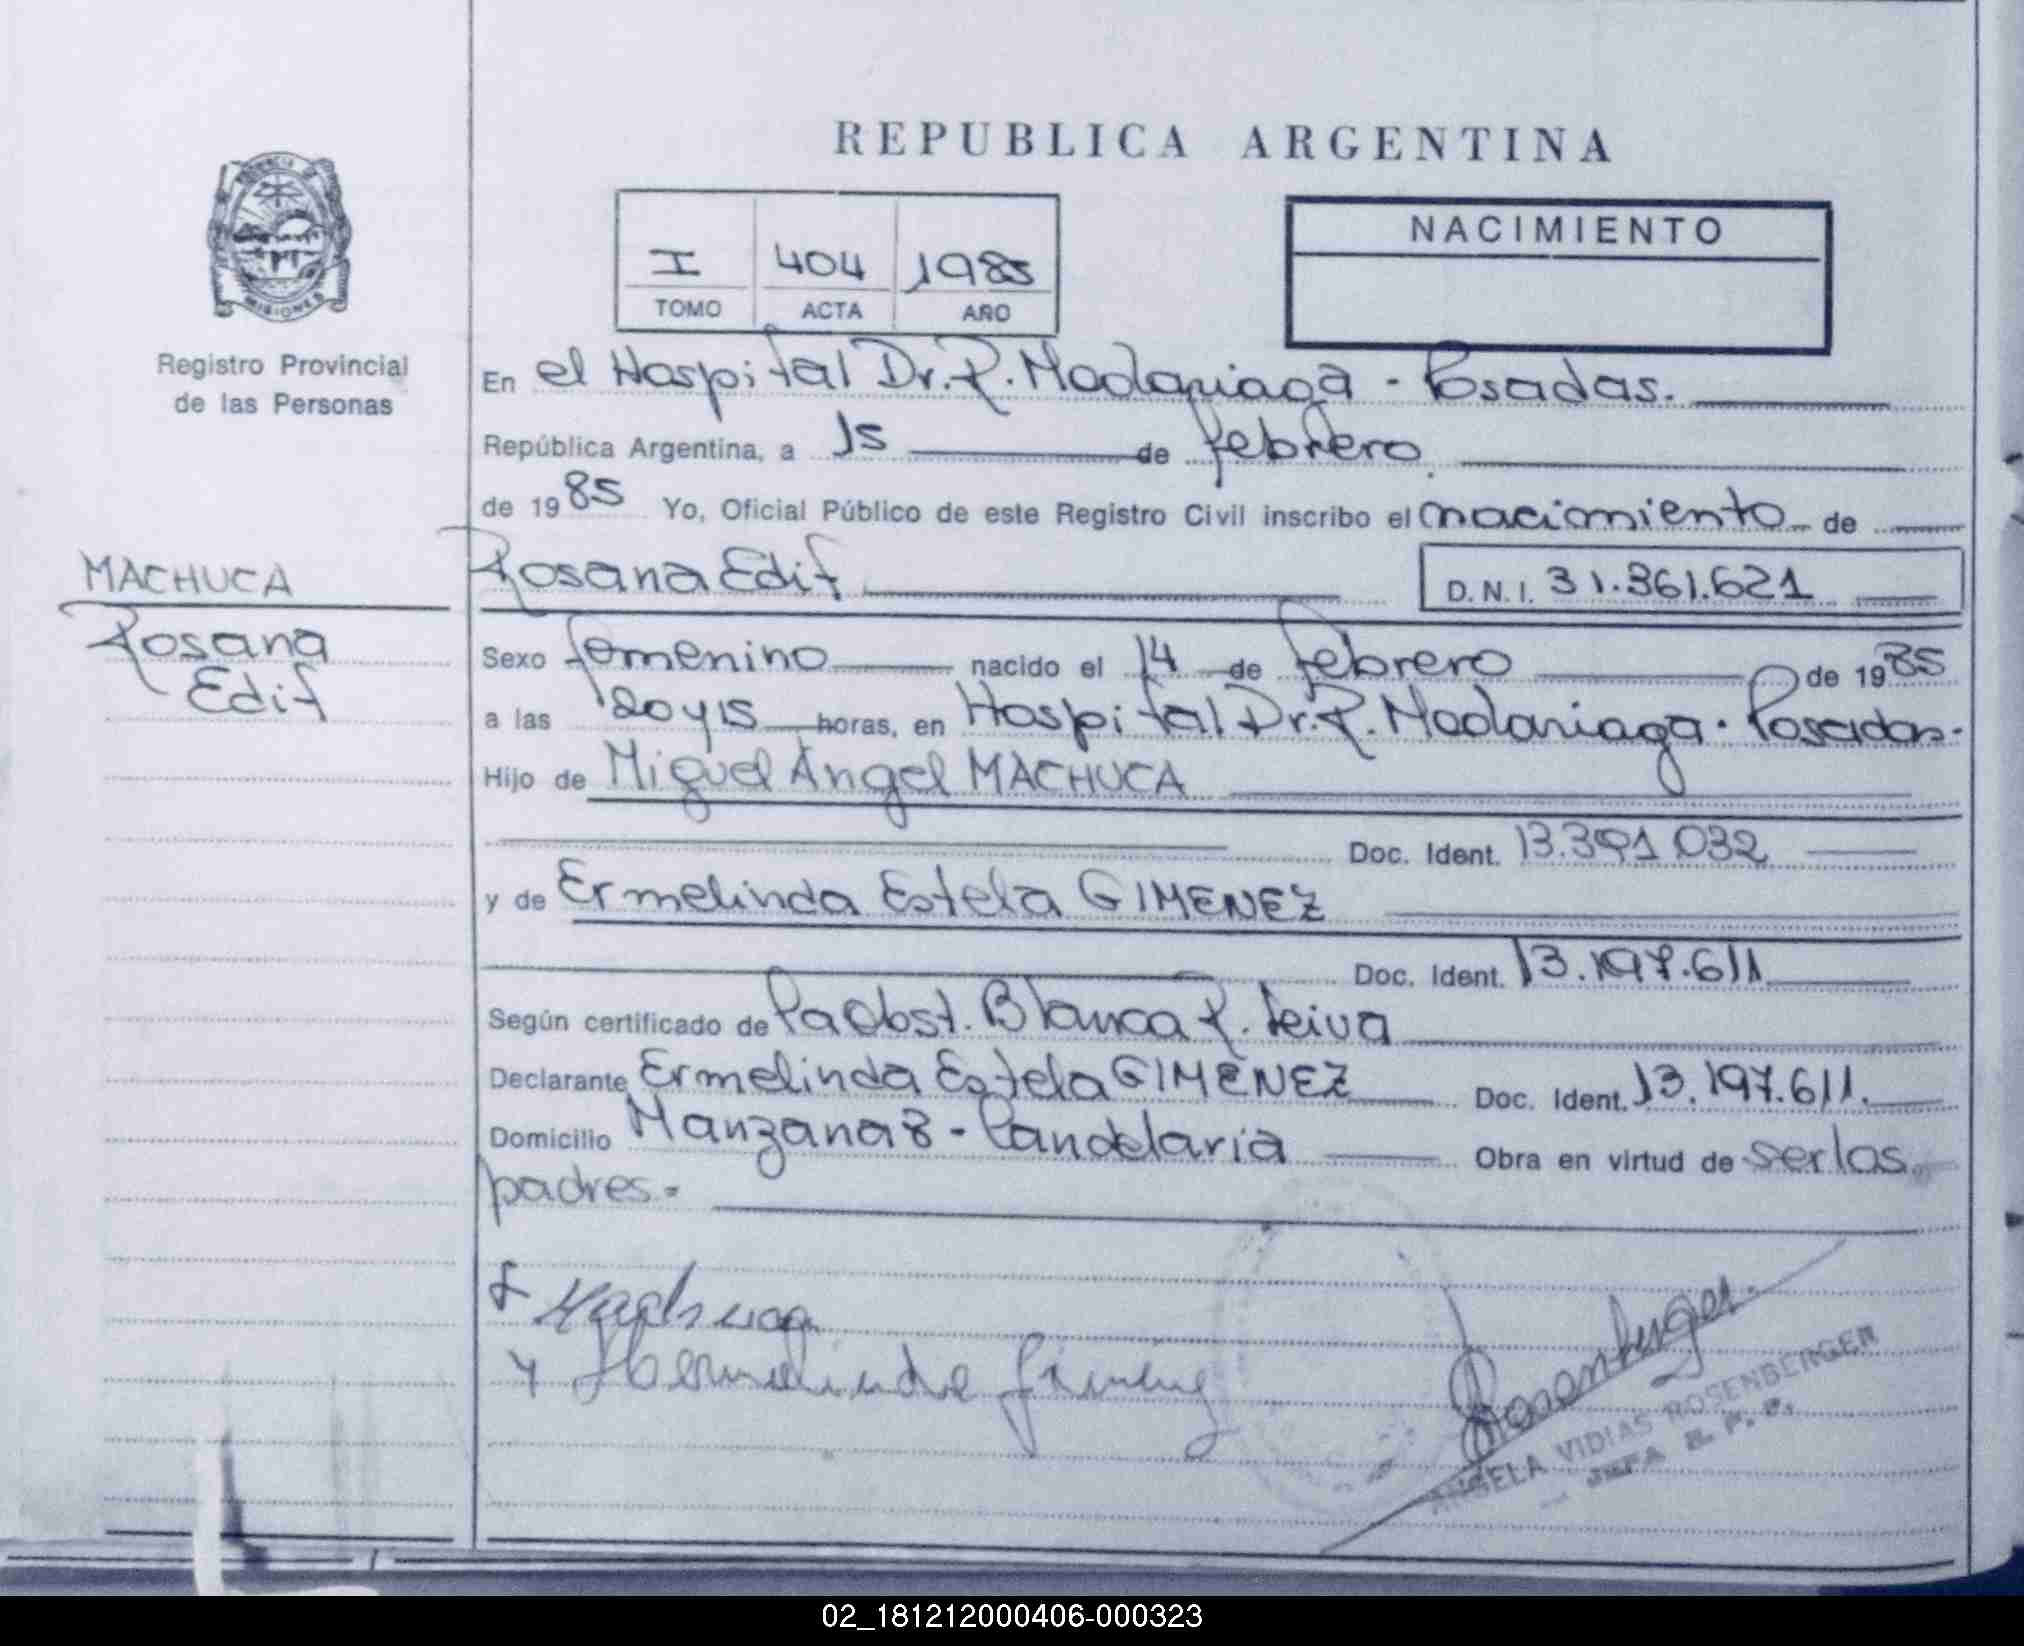 REPUBLICA ARGENTINA
PROVINCIA DE
MISIONES
Registro Provincial
de las Personas
I 404 1985
TOMO ACTA AÑO
NACIMIENTO
En el Hospital Dr. R. Madariaga - Posadas.
República Argentina, a 15 de febrero
de 1985 Yo, Oficial Público de este Registro Civil inscribo el nacimiento de
MACHUCA
Rosana
Edit
Rosana Edit D.N.I. 31.361.621
Sexo femenino nacido el 14 de febrero de 1985
a las 20 y 15 horas, en Hospital Dr. R. Madariaga - Posadas-
Hijo de Miguel Ángel MACHUCA
Doc. Ident. 13.391.032
y de Ermelinda Estela GIMENEZ
Doc. Ident. 13.197.611
Según certificado de Pa Obst. Blanca R. Leiva
Declarante Ermelinda Estela GIMENEZ Doc. Ident. 13.197.611.
Domicilio Manzana 8 - Candelaria Obra en virtud de ser los
padres.-
Machuca
Hermelinda
Rosenberger
ANGELA VIDIAS ROSENBERGER
JEFA R. P. P.
02_181212000406-000323